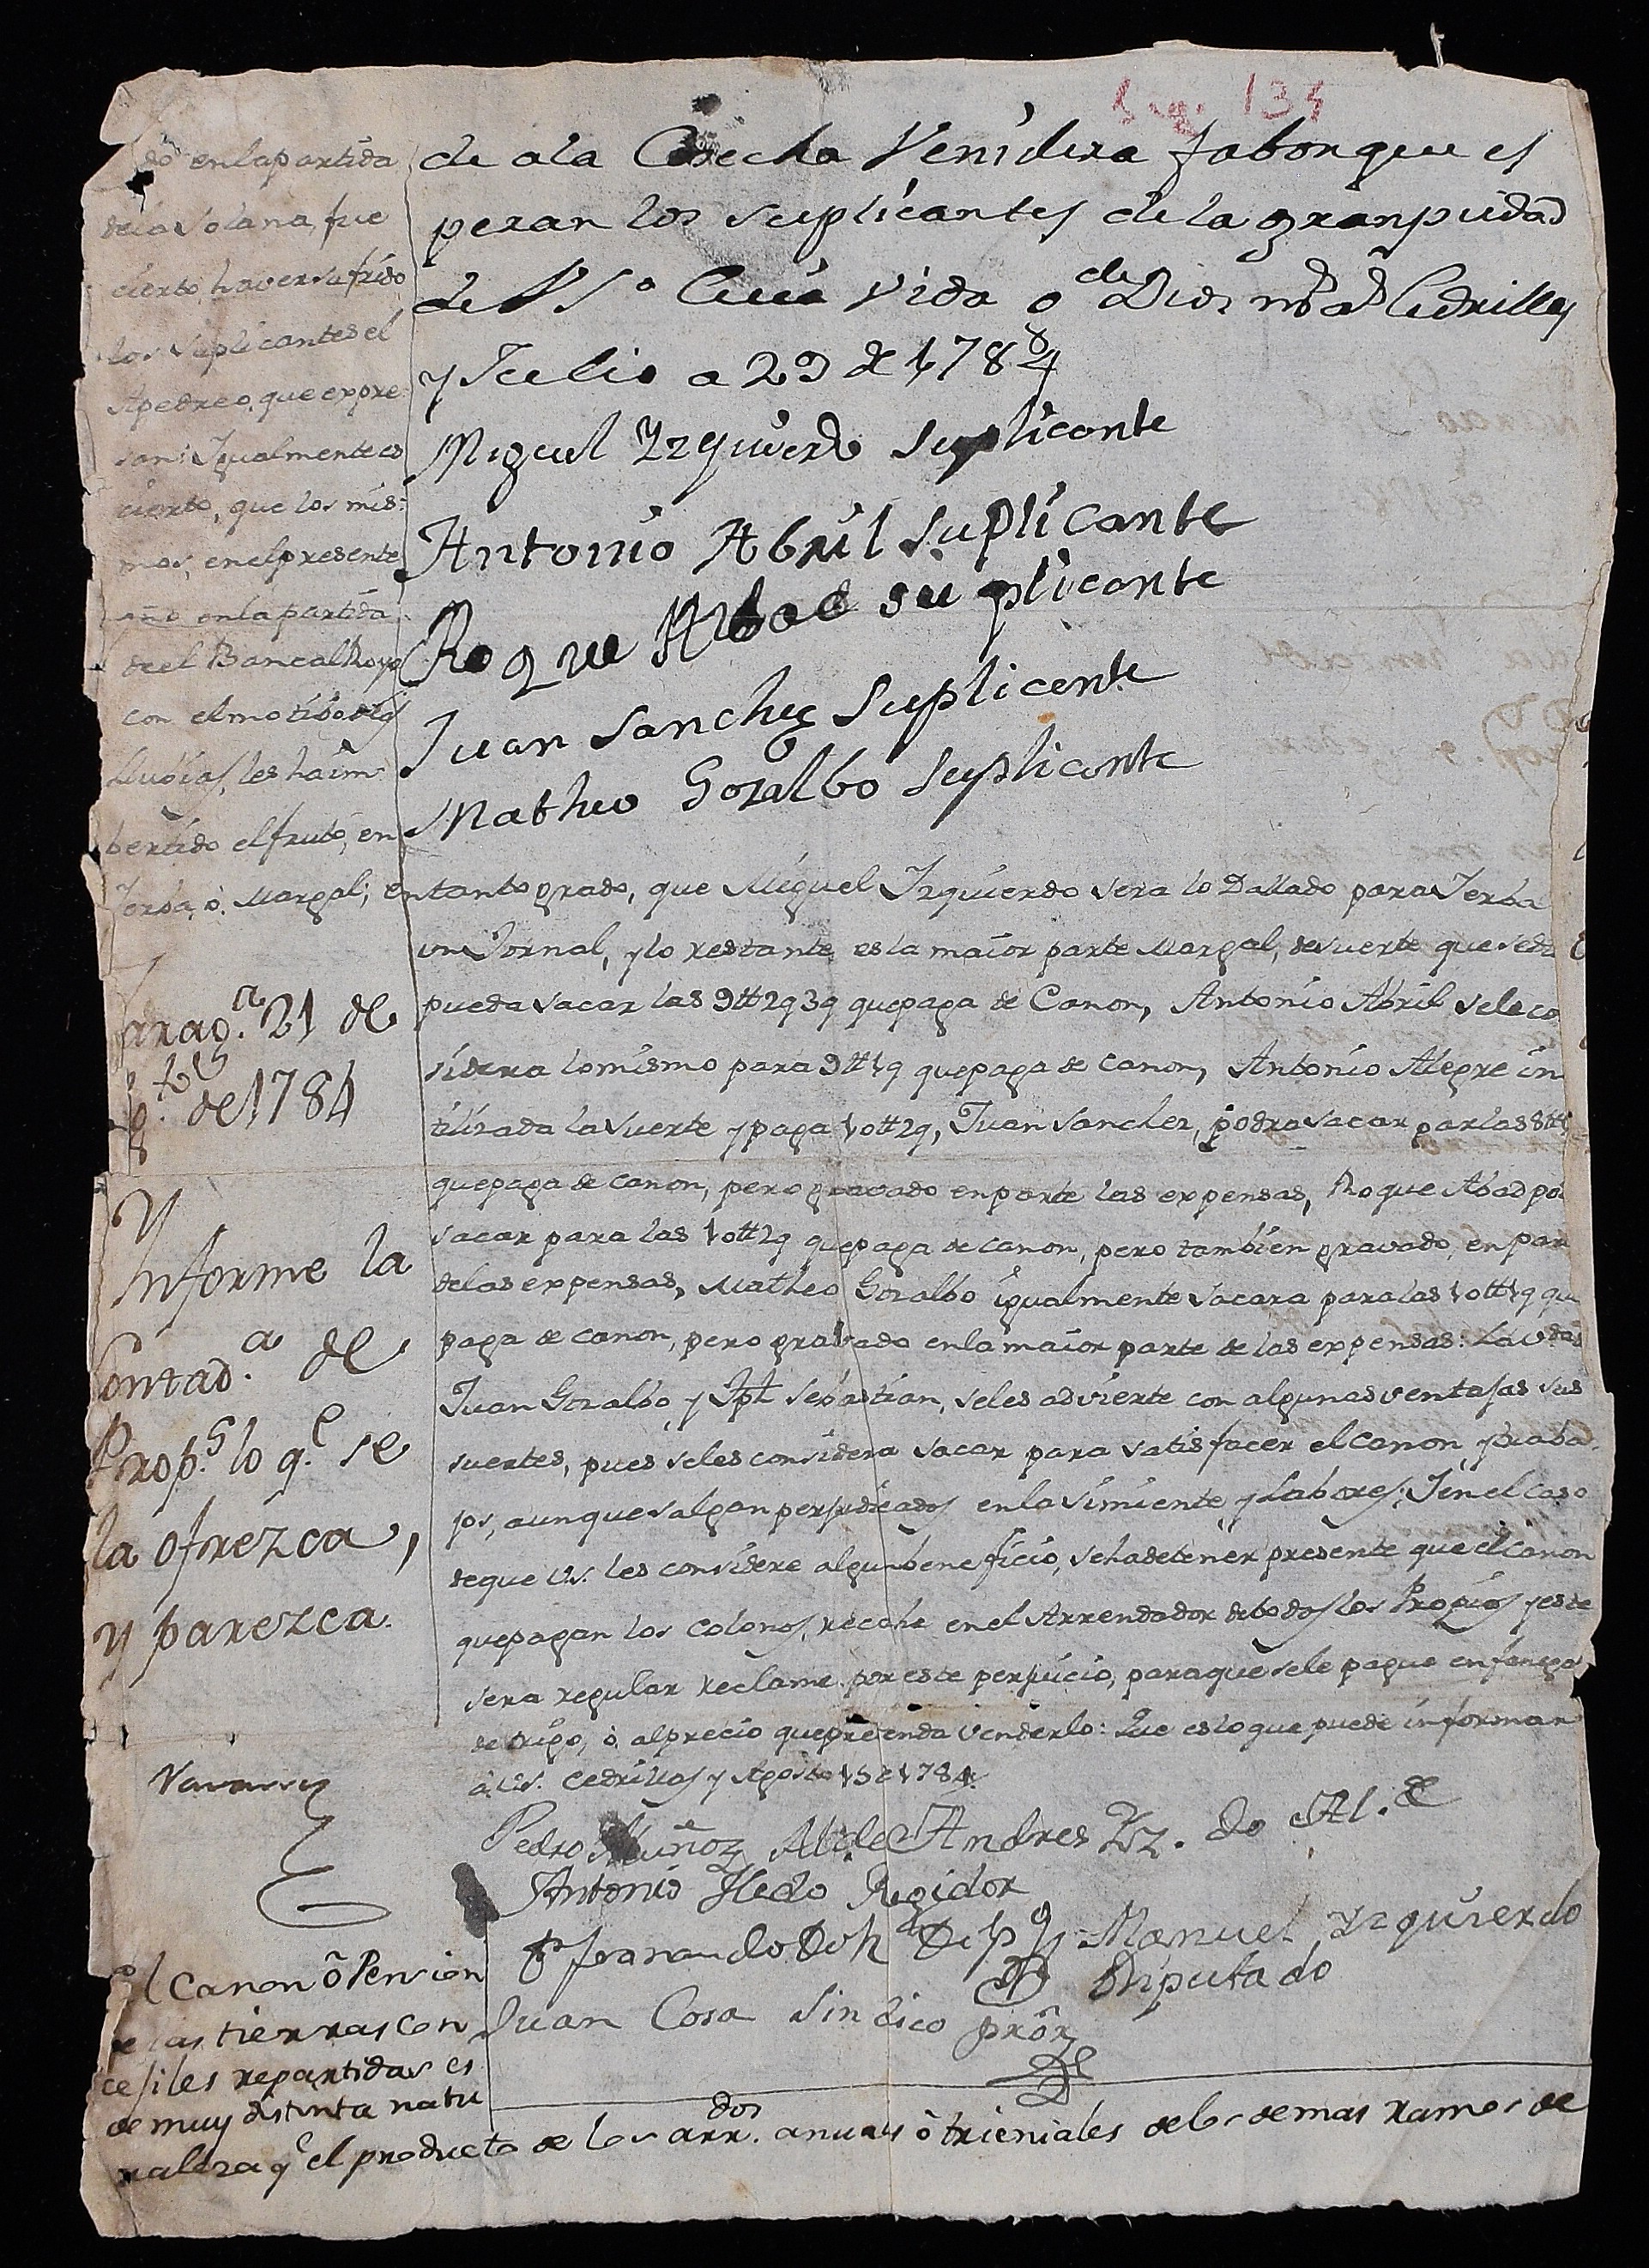 Leg. 135
de ala Cosecha Venidera fabor que es
peran los suplicantes de la gran piedad
de V Sª Cuia Vida g de Dios ms as Cedrillas
y Julio a 29 de 1784
Miguel Yzquierdo suplicante
Antonio Abril suplicante
Roque Abad suplicante
Juan Sanchez suplicente
Matheo Gozalbo suplicante
do en la partida
de la Solana, fue
cierto haver sufrido
los Suplicantes el
Apedreo, que expre
san: Igualmente es
cierto, que los mis:
mos, en el presente
año en la partida
de el Bancal Royo
con el motibo de las
Llubias, les ha im
bertido el fruto, en
Jerba, ò Margal; en tanto grado, que Miguel Izquierdo sera lo Dallado para Jerba
un Jornal, y lo restante es la maior parte Margal, de suerte que
pueda sacar las 9tt2q3q que paga de Canon, Antonio Abril se le co
sidera lo mismo para 9tt1q que paga de canon, Antonio Alegre in
tilizada la Suerte y paga 10tt2q, Juan Sanchez, podra sacar par las 8tt
que paga de canon, pero gravado en parte las expensas, Roque Abad po
sacar para las 10tt2q que paga de canon, pero tambien gravado, en par
de las expensas, Matheo Gozalbo igualmente sacara para las 10tt1q qu
paga de canon, pero grabado en la maior parte de las expensas: La vda de
Juan Gozalbo, y Jph Sebastian, se les advierte con algunas ventajas sus
suertes, pues se les considera sacar para satisfacer el canon y traba
jos, aunque salgan perjudicados en la simiente, y Labores; I en el caso
de que V.S. les considere algun beneficio, se ha de tener presente que el canon
que pagan los colonos, recahe en el Arrendador de todos los Propios y este
sera regular reclame por este perjucio, para que se le pague en fanegas
de trigo, ò al precio que pretenda venderlo: Que es lo que puede informar
à V.S. Cedrillas y Agosto 15 de 1784
Pedro Muñoz Alcde Andres Yz. do Al.de
Antonio Yledo Regidor
Fernando Dolz Dipdo Manuel Yzquierdo
Diputado
Juan Cosa Sindico prõr
arag.a 21 de
de 1784
Ynforme la
Contad.a de
Prop.s lo q.e se
la ofrezca,
y parezca.
Navarro
El canon õ Pension
de las tierras con
cejiles repartidas es
de muy distinta natu
raleza qe el producto de los arr.dos anuales ò trieniales de los demas ramos de